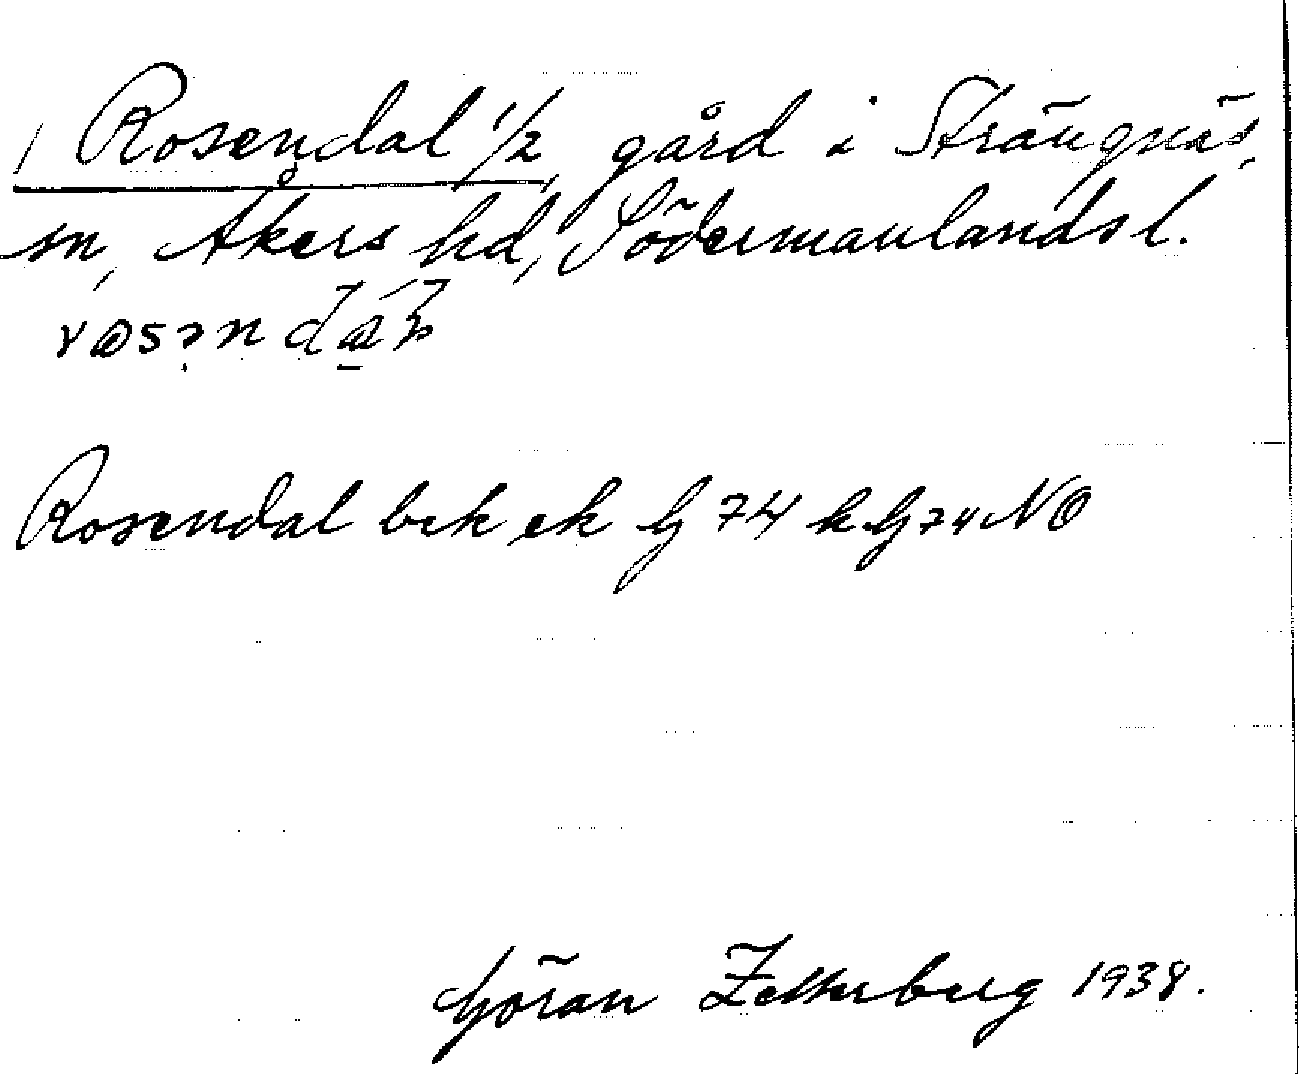 Rosendal 1/2, gård i Strängnäs
sn, Åkers hd, Södermanlands l.
Rosendal bek ek G 74 k G 74 NO
Göran Zetterberg 1938.